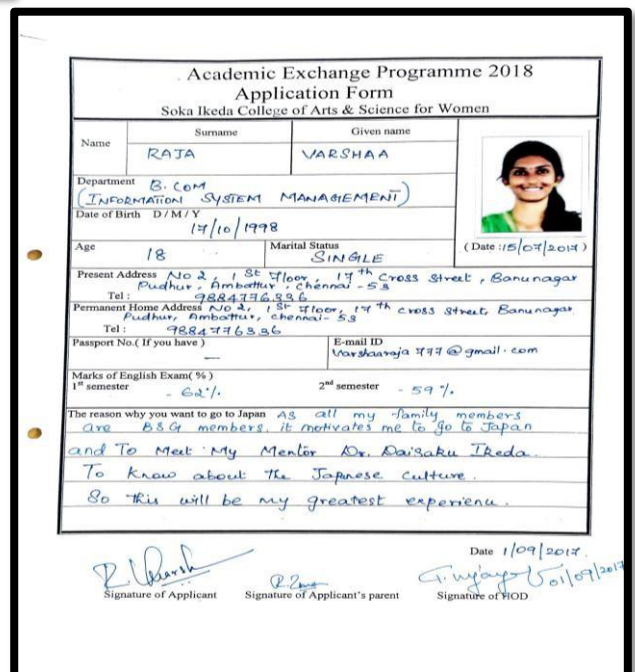 Academic Exchange Programme 2018
Application Form
Soka Ikeda College of Arts & Science for Women
Name
Surname
Given name
RAJA
VARSHAA
Department B. COM
(INFORMATION SYSTEM MANAGEMENT)
Date of Birth D / M / Y
17/10/1998
Age 18
Marital Status
SINGLE
(Date :15/07/2017)
Present Address No 2, 1 St Floor, 17th Cross Street, Banunagar
Pudhur, Ambattur, Chennai - 53
Tel : 9884776336
Permanent Home Address No 2, 1St Floor, 17th cross street, Banunagar
Pudhur, Ambattur, Chennai - 53
Tel : 9884776336
Passport No.( If you have )
—
E-mail ID
Varshaaraja777@gmail.com
Marks of English Exam( % )
1st semester - 62%
2nd semester - 59%
The reason why you want to go to Japan As all my family members
are BSG members, it motivates me to go to Japan
and To Meet My Mentor Dr. Daisaku Ikeda.
To know about the Japinese culture.
So this will be my greatest experience.
Date 1/09/2017.
01/09/2017
Signature of Applicant
Signature of Applicant's parent
Signature of HOD